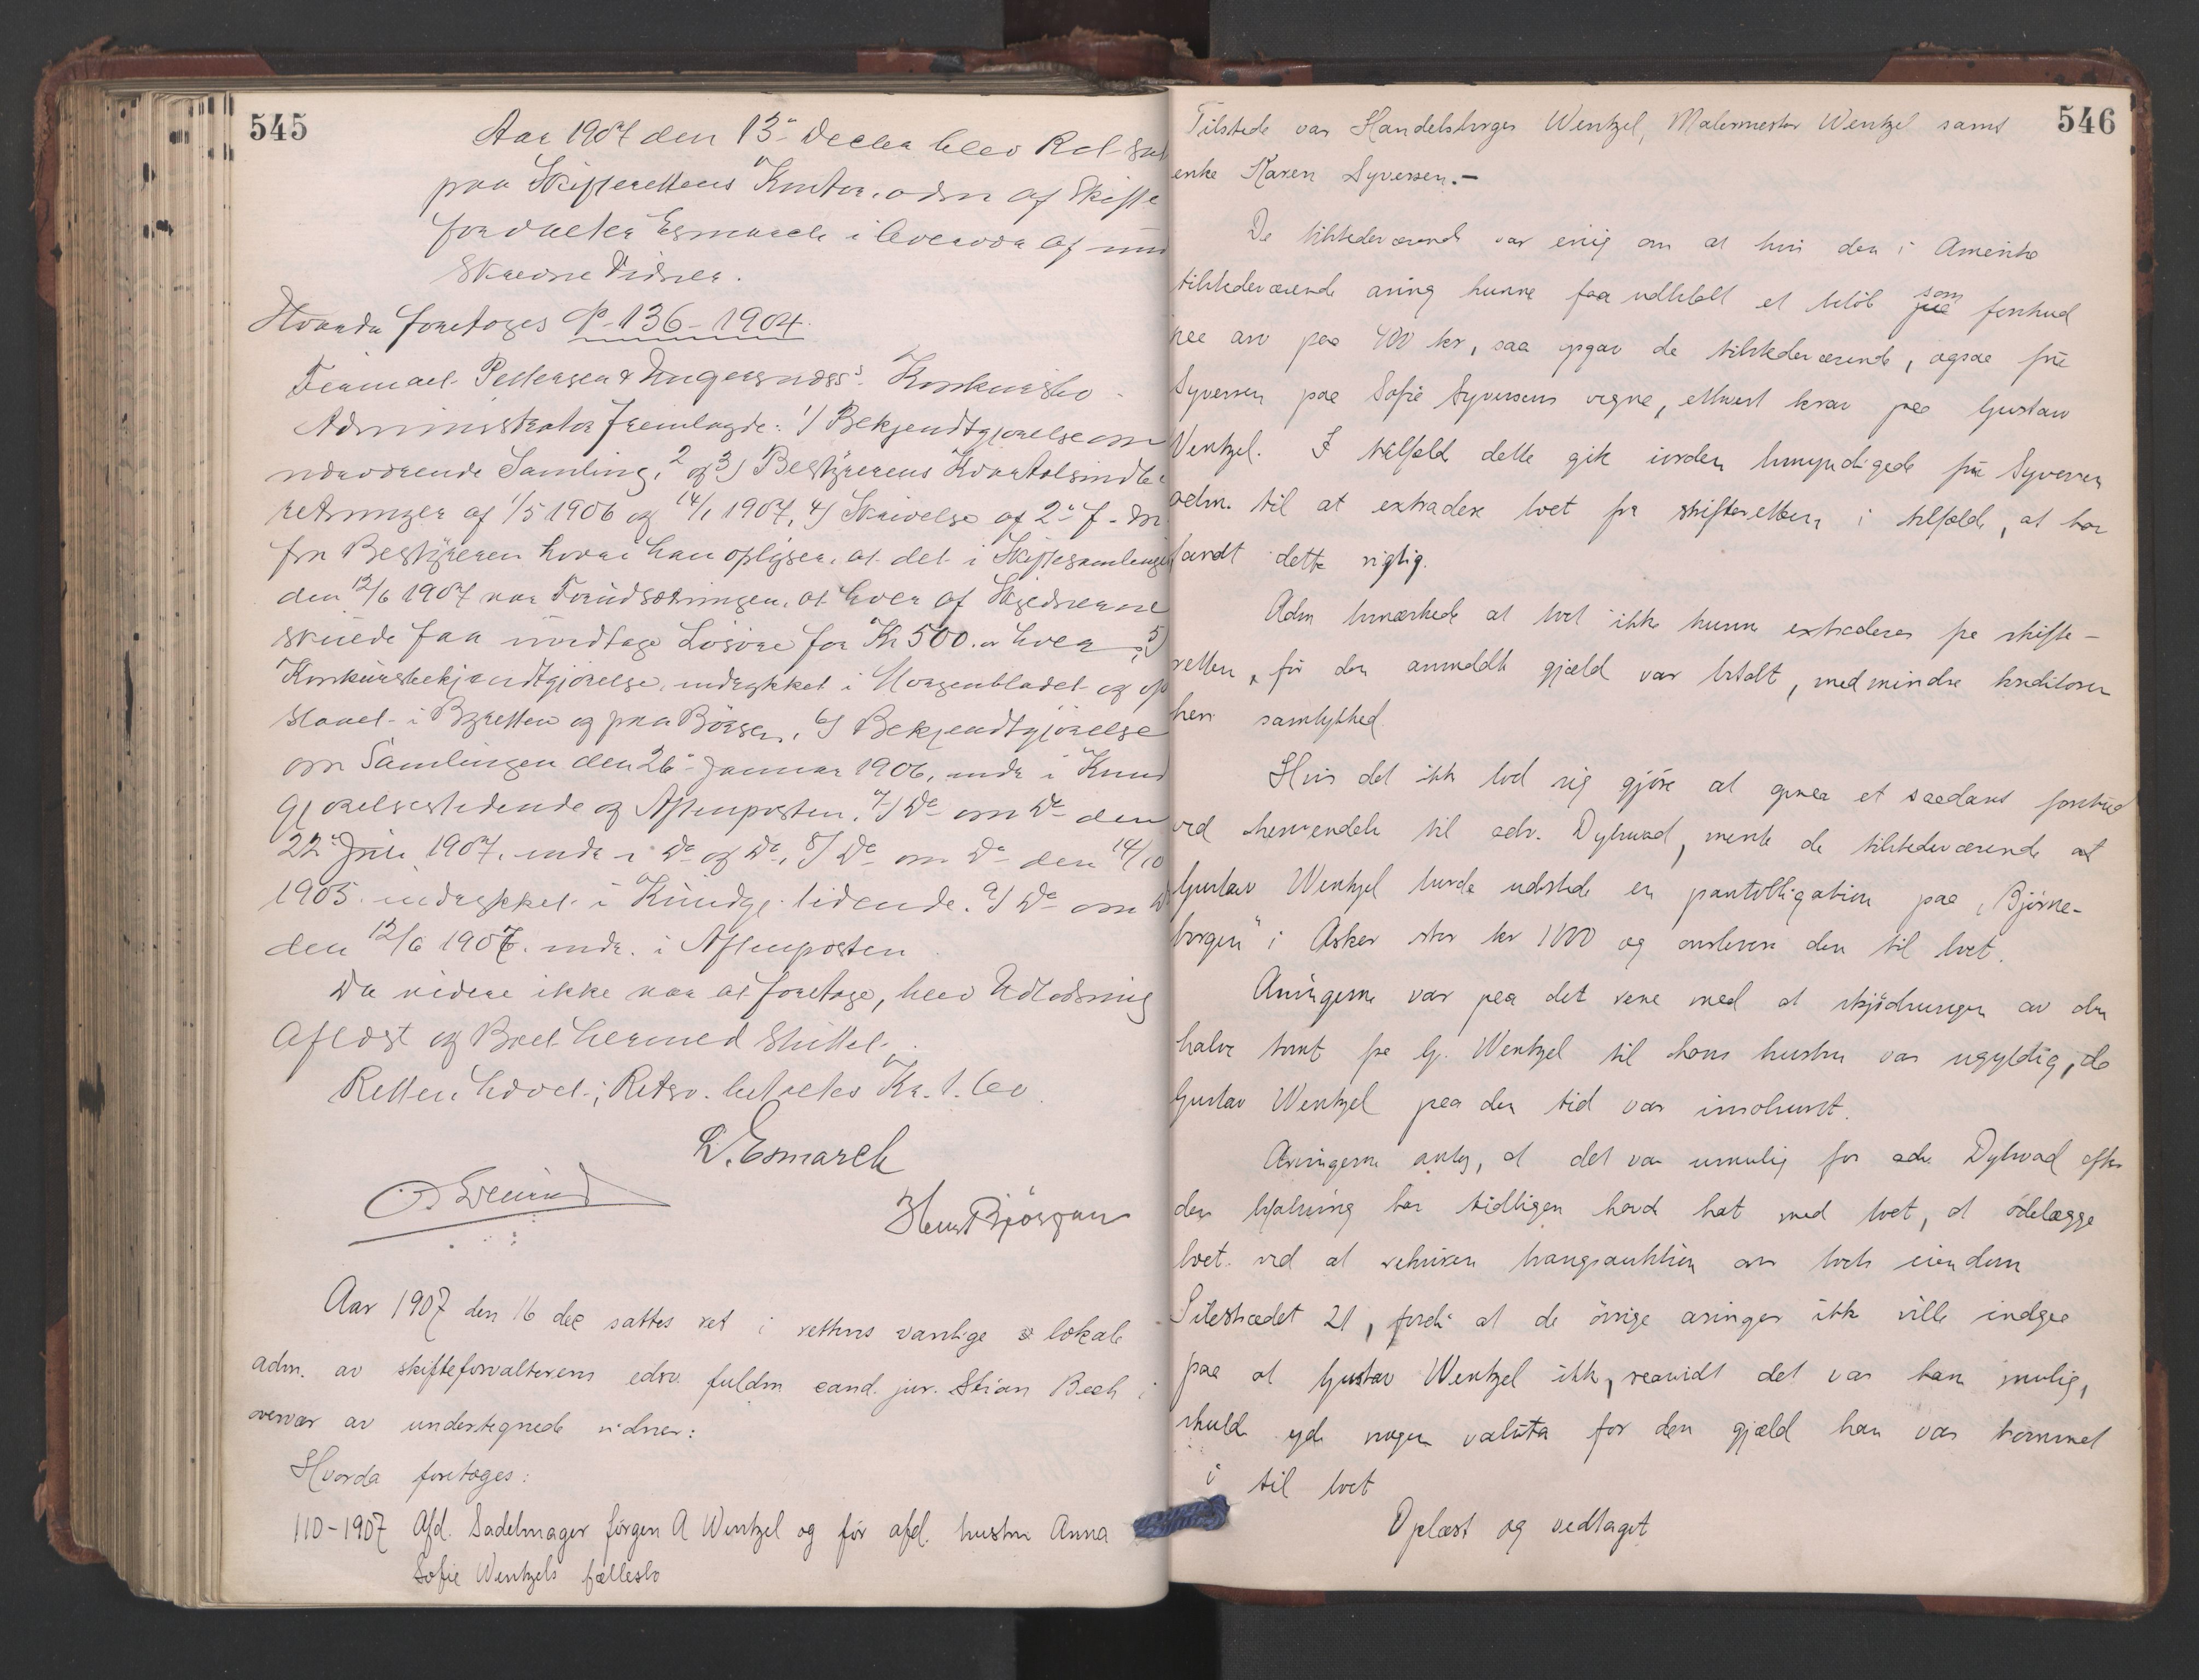 545
Aar 1907 den 13de Decbr blev Ret sat
paa Skifterettens Kontor, adm af Skifte
forvalter Esmarch i Overvær af und
skrevne Vidner.
Hvorda foretoges P-136-1904.
Firmaet Pettersen & Ungersness's Konkursbo
Administrator fremlagde: 1) Bekjendtgjørelse om
nærværende Samling, 2 og 3) Bestyrerens Kvartalsindbe
retninger af 1/5 1906 og 14/1 1907, 4) Skrivelse af 2. f. m.
fra Bestyreren hvori han oplyser, at det i Skiftesamlingen
den 12/6 1907 var Forudsætningen, at hver af
skulde faa modtage Løsøre for Kr 500. hver, 5)
Konkursbekjendtgjørelse, indrykket i Morgenbladet og op
slaaet i Byretten og paa Børsen, 6) Bekjendtgjørelse
om Samlingen den 26de Januar 1906, indr i Kund
gjørelsestidende og Aftenposten, 7) Do om Do den
22de Juli 1907, indr i Do og Do, 8) Do om Do den 14/10
1905 indrykket i Kundgj. tidende. 9) Do om D
den 12/6 1907. indr. i Aftenposten.
Da videre ikke var at foretage, blev Udlodning
Aflæst og Boet hermed Sluttet.
Retten hævet; Retsv. betaltes Kr. 1.60.
L. Esmarch
Henr Bjørgan
Aar 1907 den 16 dec sattes ret i rettens vanlige lokale
adm. av skifteforvalterens edsv. fuldm cand. jur. Stian Bech i
overvær av undertegnede vidner:
Hvorda foretoges:
110-1907 Afd. Sadelmager Jørgen A Wentzel og før afd. hustru Anna
Sofie Wentzels fællesbo
546
Tilstede var Handelsborger Wentzel, Malermester Wentzel samt
enke Karen Syversen.-
De tilstedeværende var enig om at hvis den i Amerika
tilstedeværende arving kunne faa udbetalt et beløb paa som forskud
paa arv paa 400 kr, saa opgav de tilstedeværende, ogsaa frue
Syversen paa Sofie Syversens vegne, ethvert krav paa Gustav
Wentzel. I tilfælde dette gik iorden bemyndigede frue Syversen
adm. til at extradere boet fra skifteretten i tilfælde, at han
fandt dette rigtig.
Adm bemærkede at boet ikke kunne extraderes fra skifte-
retten, før den anmeldte gjæld var betalt, medmindre kreditoren
heri samtykked.
Hvis det ikke lod sig gjøre at opnaa et saadant forskud
ved henvendelse til adv. Dybwad, mente de tilstedeværende at
Gustav Wentzel burde udstede en pantobligation paa "Bjørne-
borgen" i Asker stor kr 1000 og overlevere den til boet.
Arvingerne var paa det rene med at skjødningen av den
halve tomt fra G. Wentzel til hans hustru var ugyldig, da
Gustav Wentzel paa den tid var insolvent.
Arvingerne antog, at det var umulig for adv. Dybwad efter
den befatning han tidligere havde hat med boet, at ødelægge
boet ved at rekvirere tvangsauktion over boets eiendom
Pilestrædet 21, fordi at de øvrige arvinger ikke ville indgaa
paa at Gustav Wentzel ikke, saavidt det var ham mulig,
skulde yde nogen valuta for den gjæld han var kommet
i til boet
Oplæst og vedtaget